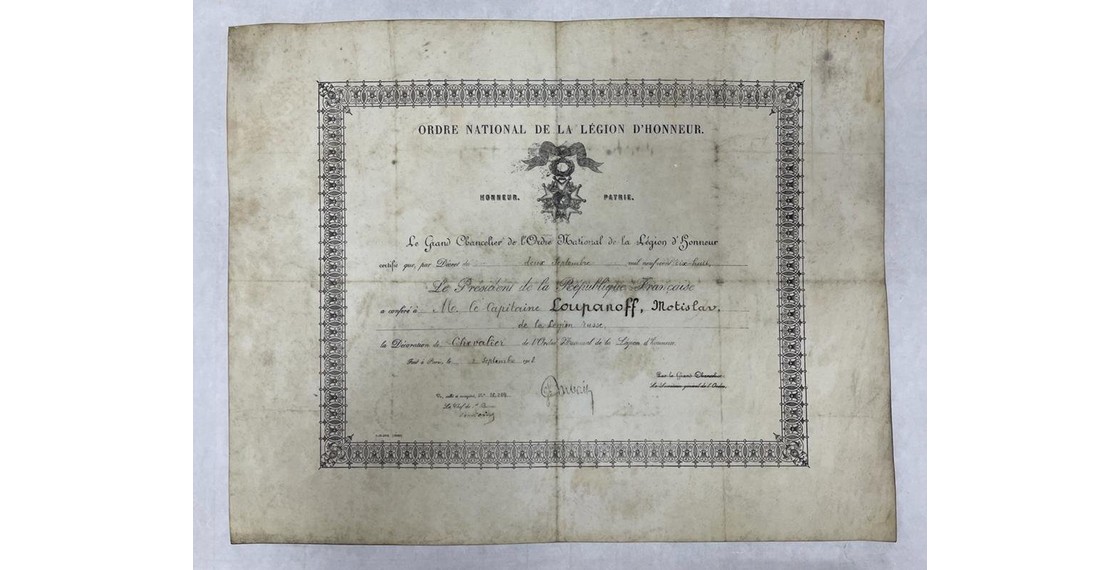 ORDRE NATIONAL DE LA LÉGION D'HONNEUR.
HONNEUR. PATRIE.
Le Grand Chancelier de l'Ordre National de la Légion d'Honneur
certifie que, par Décret du deux Septembre mil neuf cent dix-huit,
Le Président de la République Française
a conféré à M. le Capitaine Loupanoff, Motislav,
de la Légion russe,
la Décoration de Chevalier de l'Ordre National de la Légion d'Honneur
Fait à Paris, le Septembre 1918
Pour le Grand Chancelier
Le Secrétaire général de l'Ordre
Vu, scellé et enregistré, N°
Le Chef du 1er Bureau